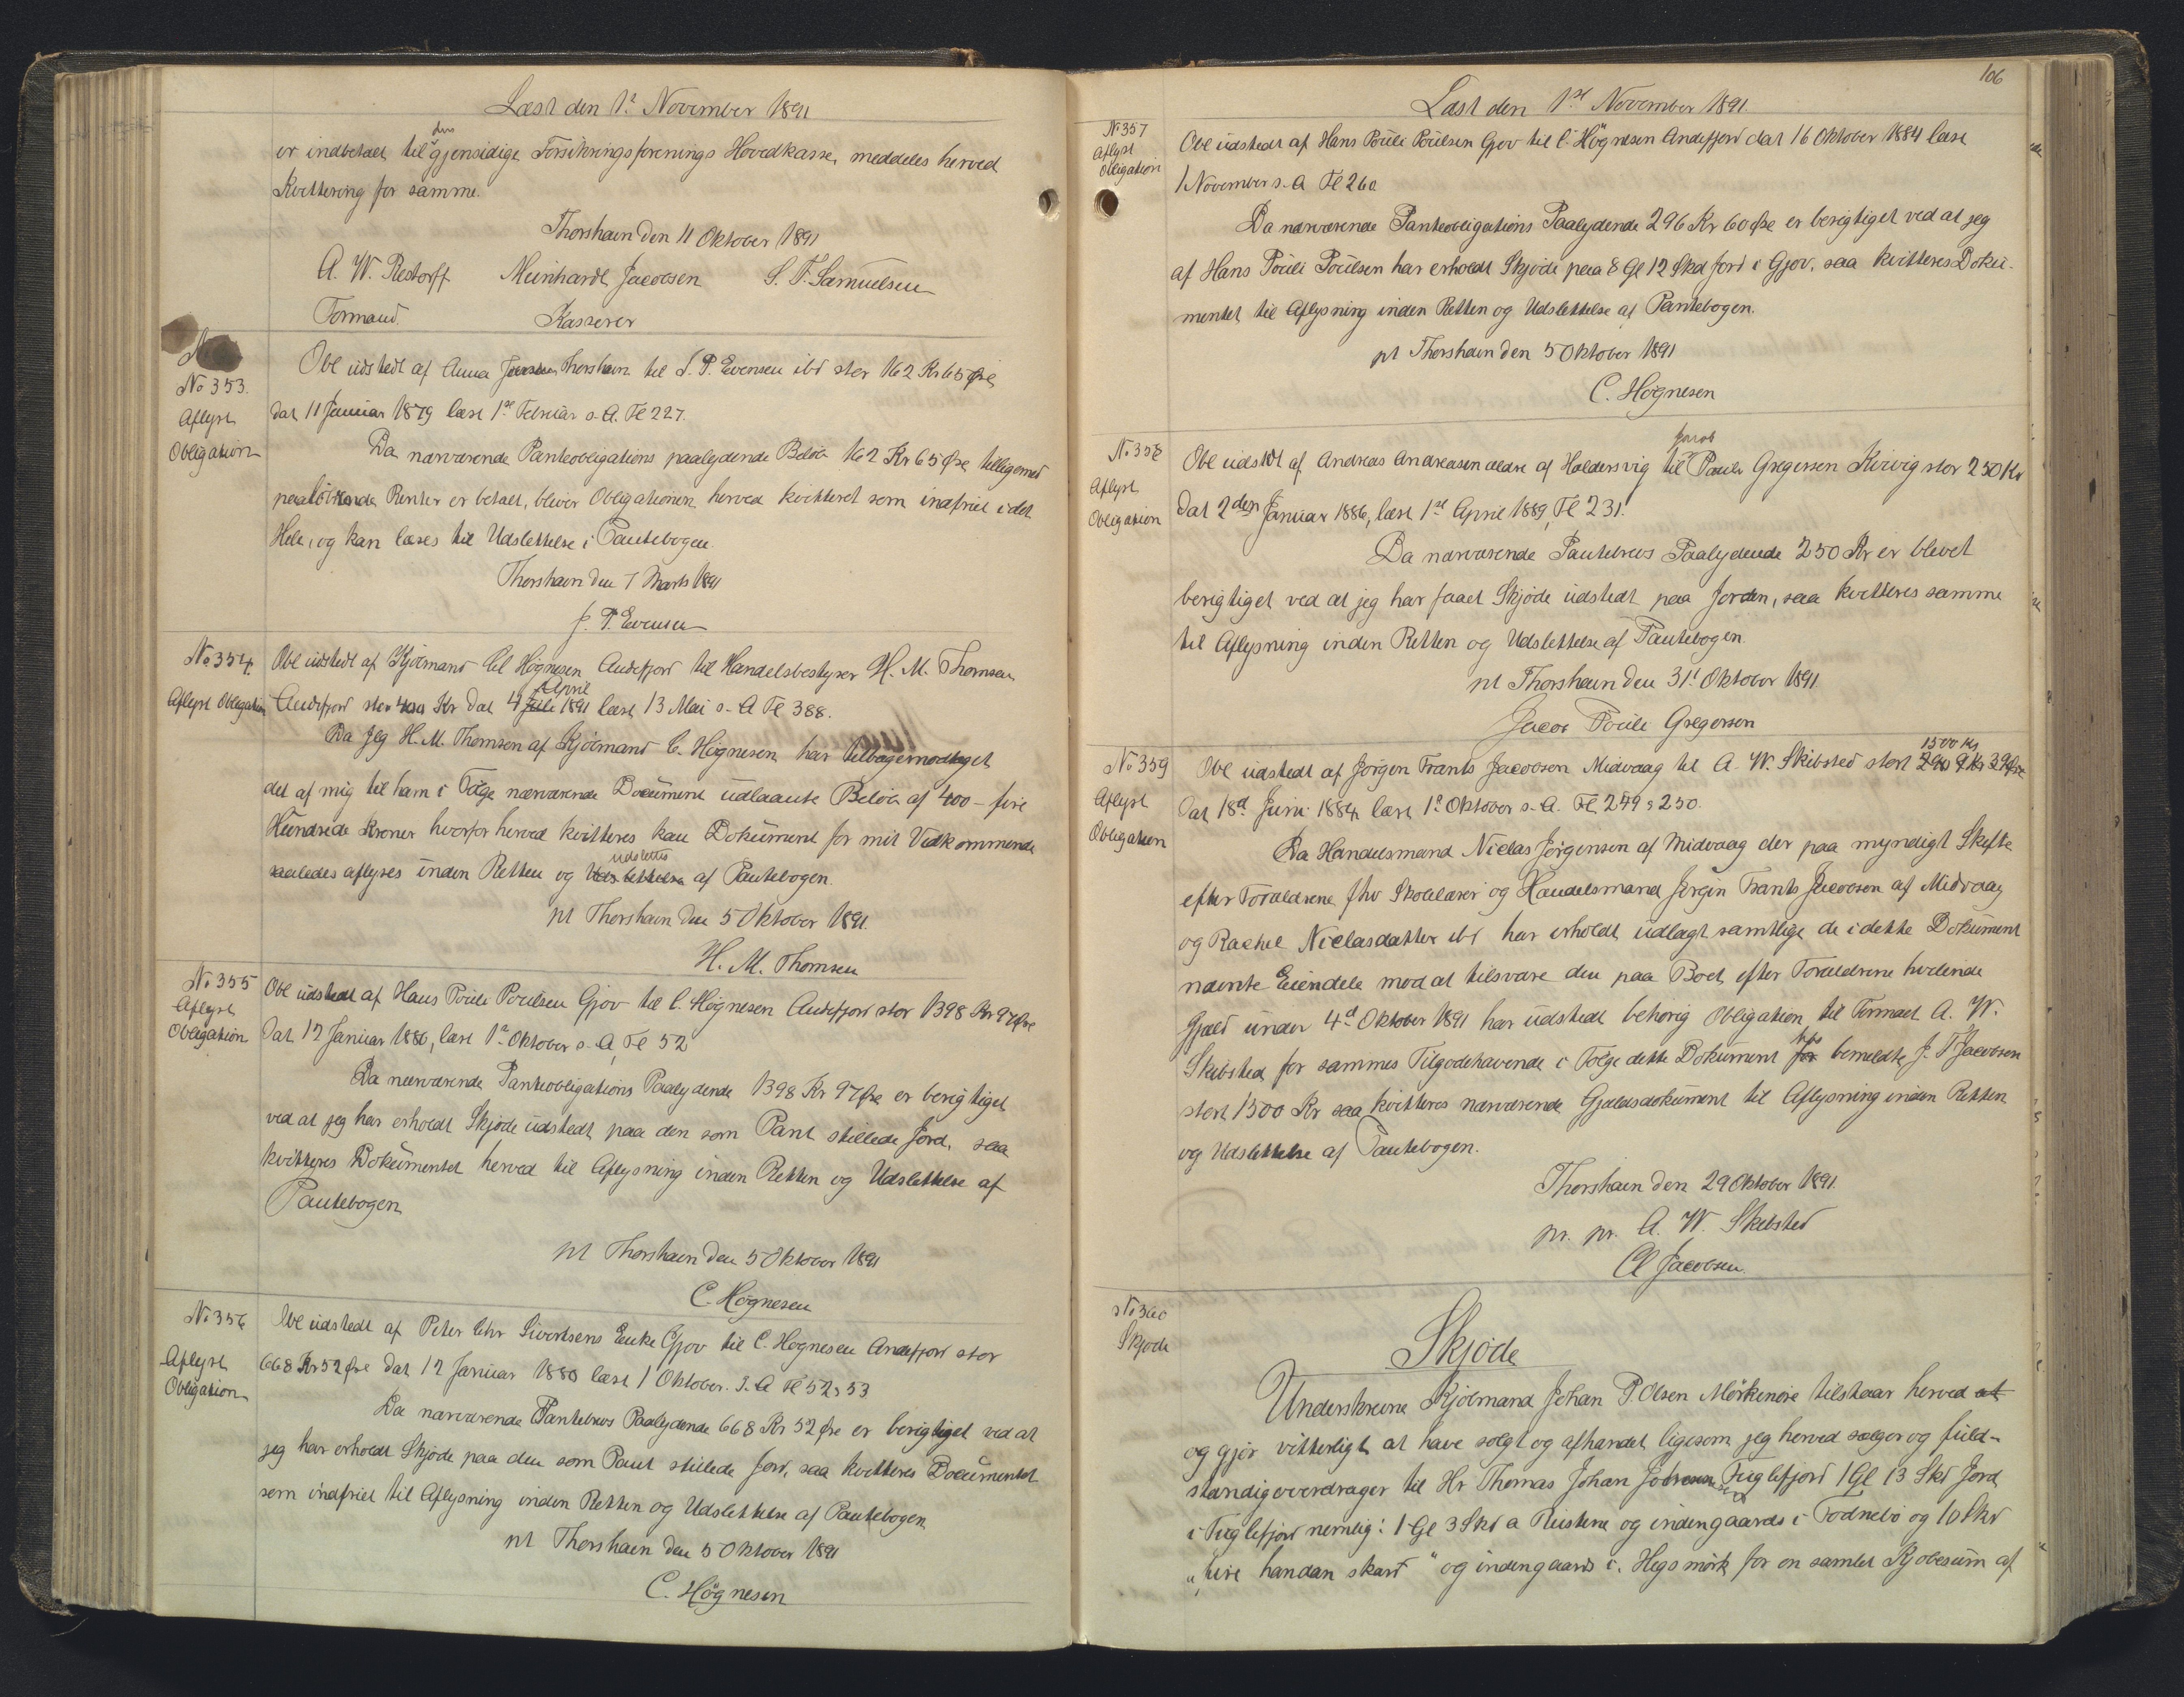 Læst den 1ᵗ November 1891
er indbetalt til den gjensidige Forsikringsforenings Hovedkasse, meddeles herved
Kvittering for samme.
Thorshavn den 11 Oktober 1891
A. W. Restorff Meinhardt Jacobsen S. F. Samuelsen
Formand. Kasserer
No 353.
Aflyst
Obligation
Obl udstedt af Anna Thorshavn til J. P. Evensen ibd stor 162 Kr 65 Øre
dat 11 Januar 1879 læst 1ˢᵗ Februar s. A. Fl 227.
Da nærværende Panteobligations paalydende Beløb 162 Kr 65 Øre tilligemed
paaløbende Renter er betalt, bliver Obligationen herved kvitteret som indfriet i det
Hele, og kan læses til Udslettelse i Pantebogen.
Thorshavn den 7 Marts 1891
J. P. Evensen
No 354.
Aflyst Obligation
Obl udstedt af Kjøbmand Högnesen Andefjord til Handelsbestyrer H. M. Thomsen
Andefjord stor 400 Kr dat 4 Juli April 1891 læst 13 Mai s. A Fl 388.
Da jeg H. M. Thomsen af Kjøbmand C. Högnesen har tilbagemodtaget
det af mig til ham i Følge nærværende Document udlaante Beløb af 400 - fire
Hundrede Kroner hvorfor herved kvitteres kan Dokument for mit Vedkommende
saaledes aflyses inden Retten og Udslettelse udslettes af Pantebogen.
pt Thorshavn den 5 Oktober 1891.
H. M. Thomsen
No 355
Aflyst
Obligation
Obl udstedt af Hans Pouli Poulsen Gjov til C. Högnesen Andefjord stor 1398 Kr 97 Øre
dat 12 Januar 1880, læst 1ᵗ Oktober s. A, Fl 52
Da nærværende Panteobligations Paalydende 1398 Kr 97 Øre er berigtiget
ved at jeg har erholdt Skjøde udstedt paa den som Pant stillede Jord, saa
kvitteres Dokumentet herved til Aflysning inden Retten og Udslettelse af
Pantebogen
pt Thorshavn den 5 Oktober 1891
C. Högnesen
No 356
Aflyst
Obligation
Obl udstedt af Peter Chr Sivertsens Enke Gjov til C. Högnesen Andefjord stor
668 Kr 52 Øre dat 12 Januar 1880 læst 1 Oktober. s. A Fl 52 & 53
Da nærværende Pantebrevs Paalydende 668 Kr 52 Øre er berigtiget ved at
jeg har erholdt Skjøde paa den som Pant stillede Jord, saa kvitteres Documentet
som indfriet til Aflysning inden Retten og Udslettelse af Pantebogen
pt Thorshavn den 5 Oktober 1891
C. Högnesen
106
Læst den 1ˢᵗ November 1891.
No 357
Aflyst
Obligation
Obl udstedt af Hans Pouli Poulsen Gjov til C. Högnesen Andefjord dat 16 Oktober 1884 læst
1 November s. A Fl 260
Da nærværende Panteobligations Paalydende 296 Kr 60 Øre er berigtiget ved at jeg
af Hans Pouli Poulsen har erholdt Skjøde paa 8 Gl 12 Skd Jord i Gjov, saa kvitteres Doku-
mentet til Aflysning inden Retten og Udslettelse af Pantebogen.
pt Thorshavn den 5 Oktober 1891
C. Högnesen
No 358
Aflyst
Obligation
Obl udstedt af Andreas Andreasen ældre af Haldersvig til Jacob Pauli Gregersen Kvivig stor 250 Kr
dat 2den Januar 1886, læst 1ˢᵗ April 1889, Fl 231.
Da nærværende Pantebrevs Paalydende 250 Kr er blevet
berigtiget ved at jeg har faaet Skjøde udstedt paa Jorden, saa kvitteres samme
til Aflysning inden Retten og Udslettelse af Pantebogen.
pt Thorshavn den 31ᵗ Oktober 1891
Jacob Pouli Gregersen
No 359
Aflyst
Obligation
Obl udstedt af Jörgen Frants Jacobsen Midvaag til A. W. Skibsted stort 1500 Kr
dat 18ᵈ Juni 1884 læst 1ᵗ Oktober s. A. Fl. 249 & 250.
Da Handelsmand Niclas Jörgensen af Midvaag der paa myndigt Skifte
efter Forældrene fhv Skolelærer og Handelsmand Jörgin Frants Jacobsen af Midvaag
og Rachel Niclasdatter ibd har erholdt udlagt samtlige de i dette Dokument
nævnte Eiendele mod at tilsvare den paa Boet efter Forældrene hvilende
Gjæld under 4ᵈ Oktober 1891 har udstedt behörig Obligation til Firmaet A. W.
Skibsted for sammes Tilgodehavende i Følge dette Dokument for hos bemeldte J. F Jacobsen
stort 1500 Kr saa kvitteres nærværende Gjældsdokument til Aflysning inden Retten
og Udslettelse af Pantebogen.
Thorshavn den 29 Oktober 1891.
pr. pr. A. W. Skibsted
Cl Jacobsen.
No 360
Skjøde
Skjøde
Underskrevne Kjøbmand Johan P. Olsen Mörkenöre tilstaar herved at
og gjør vitterligt at have solgt og afhandet ligesom jeg herved sælger og fuld-
stændig overdrager til Hr Thomas Johan Fuglefjord 1 Gl 13 Skd Jord
i Fuglefjord nemlig: 1 Gl 3 Skd a Reistene og indengaards i Todnebö og 10 Skd
„uvi handan skard" og indengaards i. Hegsmörk for en samlet Kjøbesum af